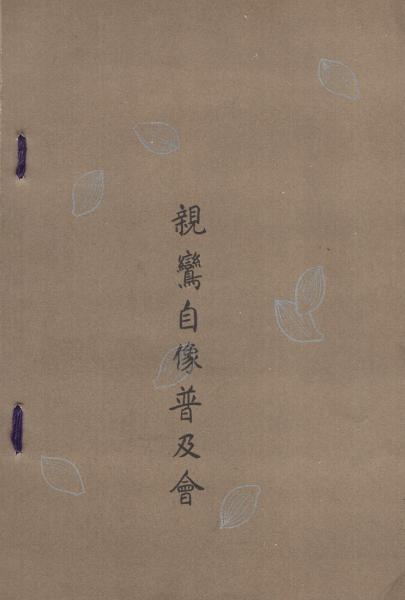 親鸞自像普及會